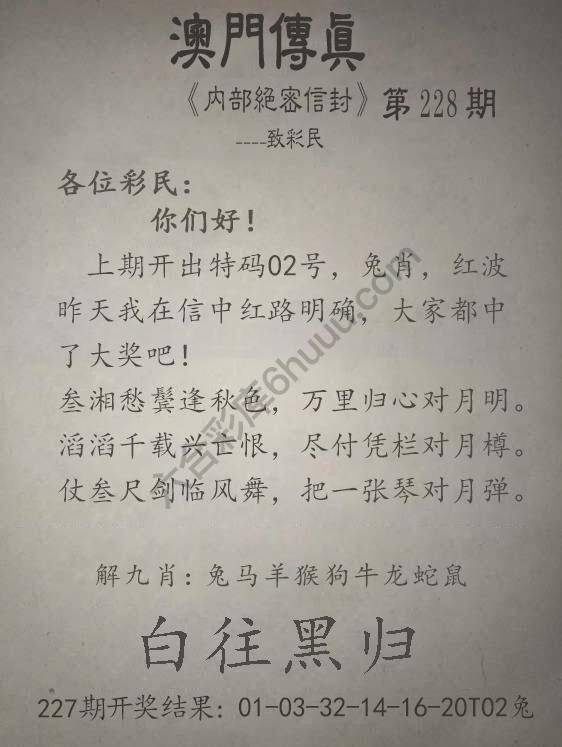 澳門傳真
《内部絕密信封》第228期
----致彩民
各位彩民：
你们好！
上期开出特码02号，兔肖，红波
昨天我在信中红路明确，大家都中
了大奖吧！
叁湘愁鬓逢秋色，万里归心对月明。
滔滔千载兴亡恨，尽付凭栏对月樽。
仗叁尺剑临风舞，把一张琴对月弹。
六合彩库6huuu.com
解九肖：兔马羊猴狗牛龙蛇鼠
白往黑归
227期开奖结果：01-03-32-14-16-20T02兔